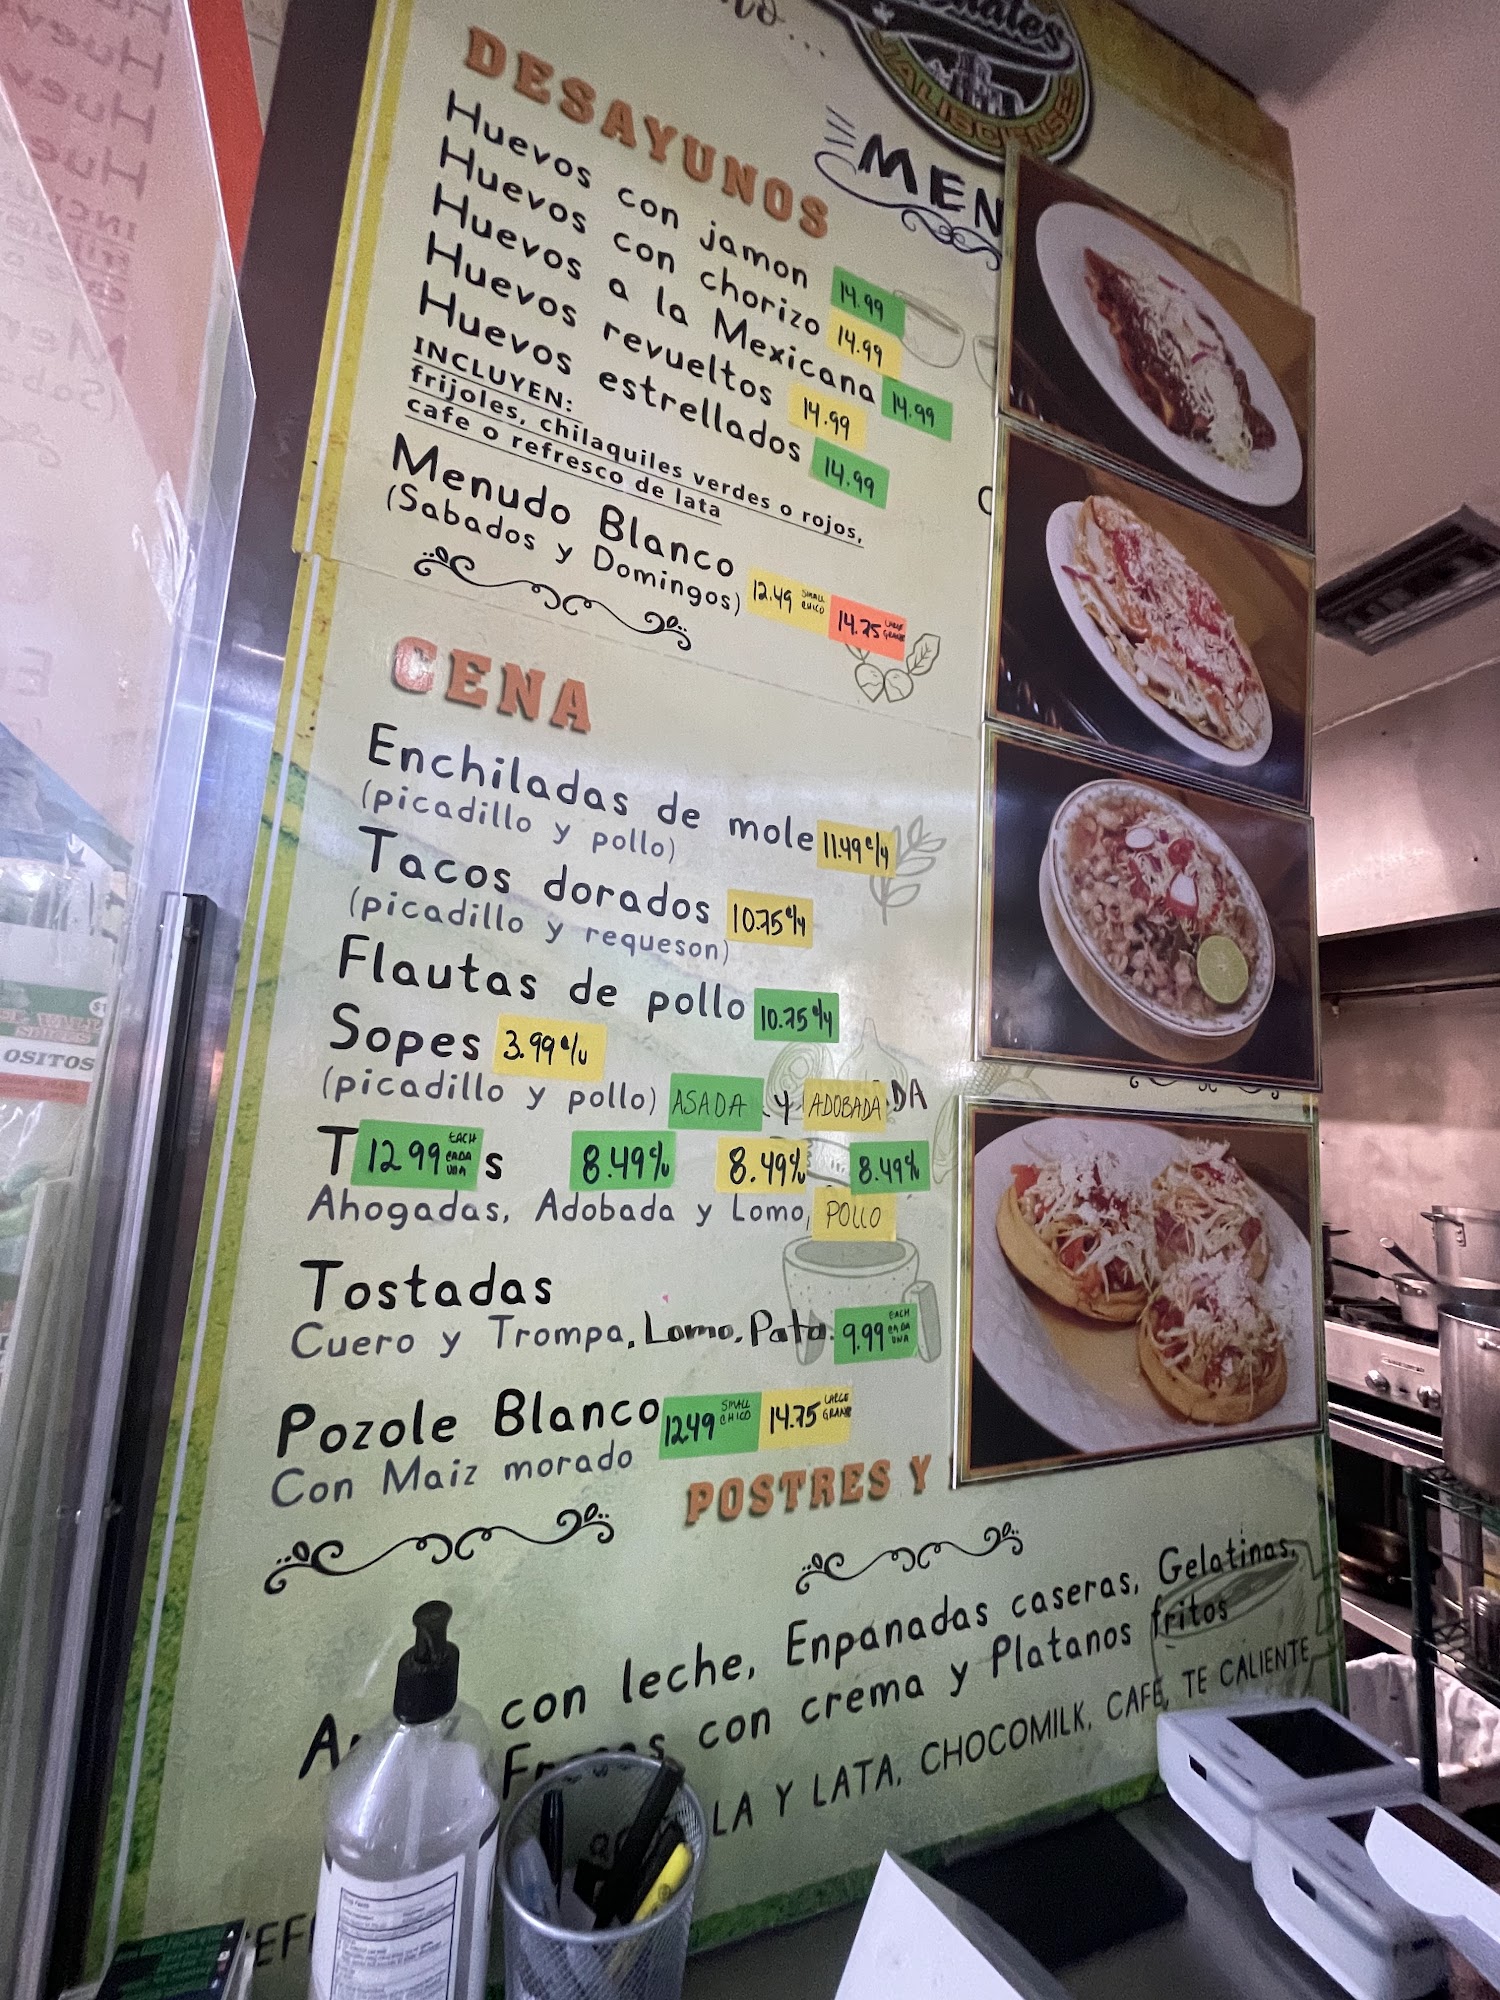 JALISCIENSES
MEN
DESAYUNOS
Huevos con jamon 14.99
Huevos con chorizo 14.99
Huevos a la Mexicana 14.99
Huevos revueltos 14.99
Huevos estrellados 14.99
INCLUYEN:
frijoles, chilaquiles verdes o rojos,
cafe o refresco de lata
Menudo Blanco 12.49 SMALL CHICO 14.75 LARGE GRANDE
(Sabados y Domingos)
CENA
Enchiladas de mole 11.49 c/4
(picadillo y pollo)
Tacos dorados 10.75 c/4
(picadillo y requeson)
Flautas de pollo 10.75 c/4
Sopes 3.99 c/u
(picadillo y pollo) ASADA y ADOBADA DA
T 12.99 EACH CADA UNA s 8.49 c/u 8.49 c/u 8.49 c/u
Ahogadas, Adobada y Lomo, POLLO
Tostadas
Cuero y Trompa, Lomo, Pata. 9.99 EACH CADA UNA
Pozole Blanco 12.49 SMALL CHICO 14.75 LARGE GRANDE
Con Maiz morado
POSTRES Y
con leche, Enpanadas caseras, Gelatinas,
con crema y Platanos fritos
LA Y LATA, CHOCOMILK, CAFE, TE CALIENTE
OSITOS